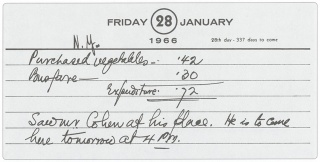 FRIDAY 28 JANUARY
1966 28th day - 337 days to come
N.Y.
Purchased vegetables — .42
Busfare — .30
Expenditure .72
Saw Mr Cohen at his place. He is to come
here tomorrow at 4 P.M.